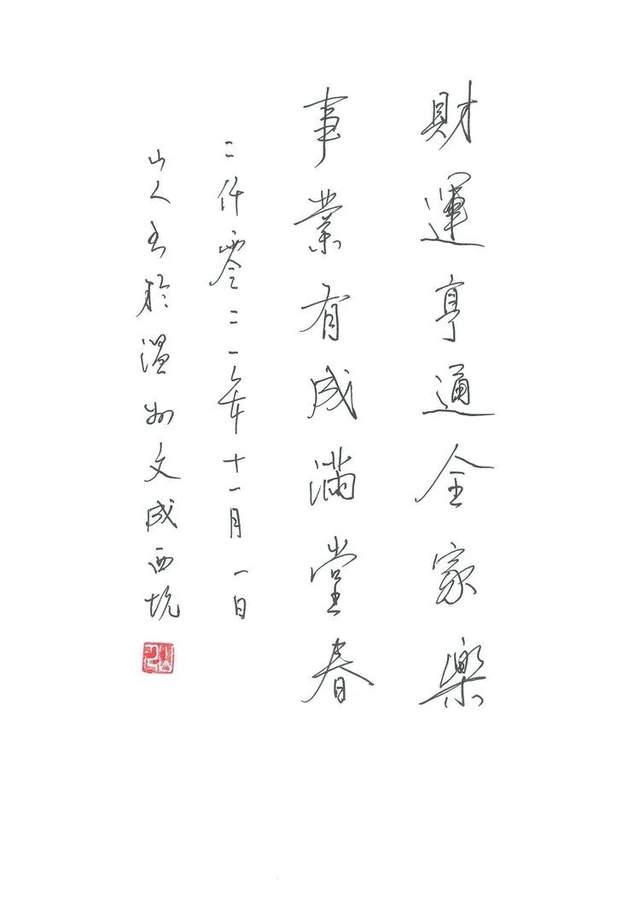 財運亨通全家樂
事業有成滿堂春
二仟零二一年十一月一日
山人书於温州文成西坑